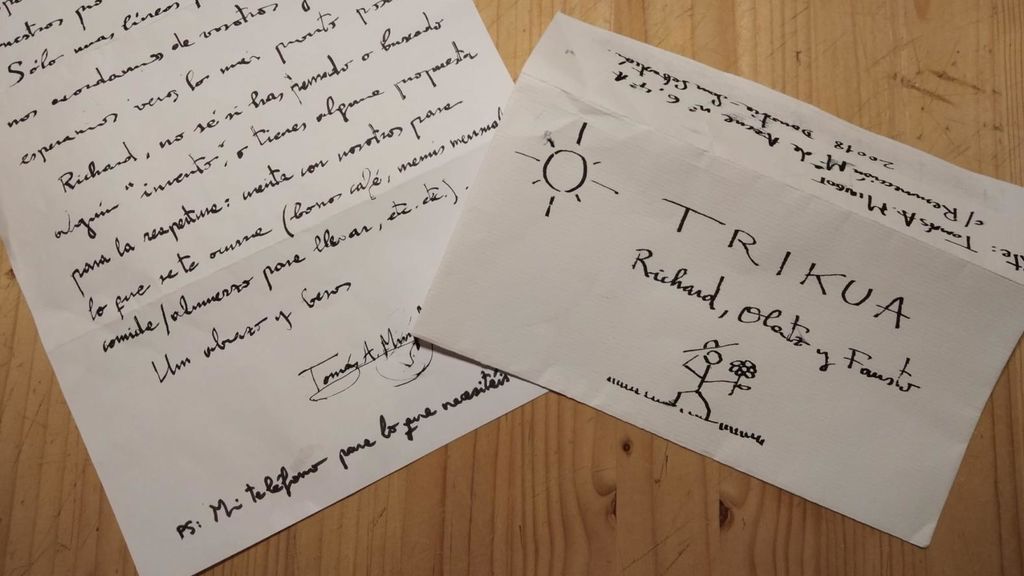 Sólo unas líneas p
nos acordamos de vosotros y
esperamos veros lo mas pronto pos
Richard, no sé si has pensado o buscado
algún "invento", o tienes alguna propuesta
para la reapertura: cuenta con nosotros para
lo que se te ocurra (bonos café, menús mensual
comida/almuerzo para llevar, etc. etc).
Un abrazo y besos
Tomás A. Min
PS: Mi teléfono para lo que necesitéis
te: Tomás A. Mínguez
c/ Resurrección Mª de Azcue nº 6
20018 Donostia - San Sebastián
TRIKUA
Richard, Olatz y Fausto